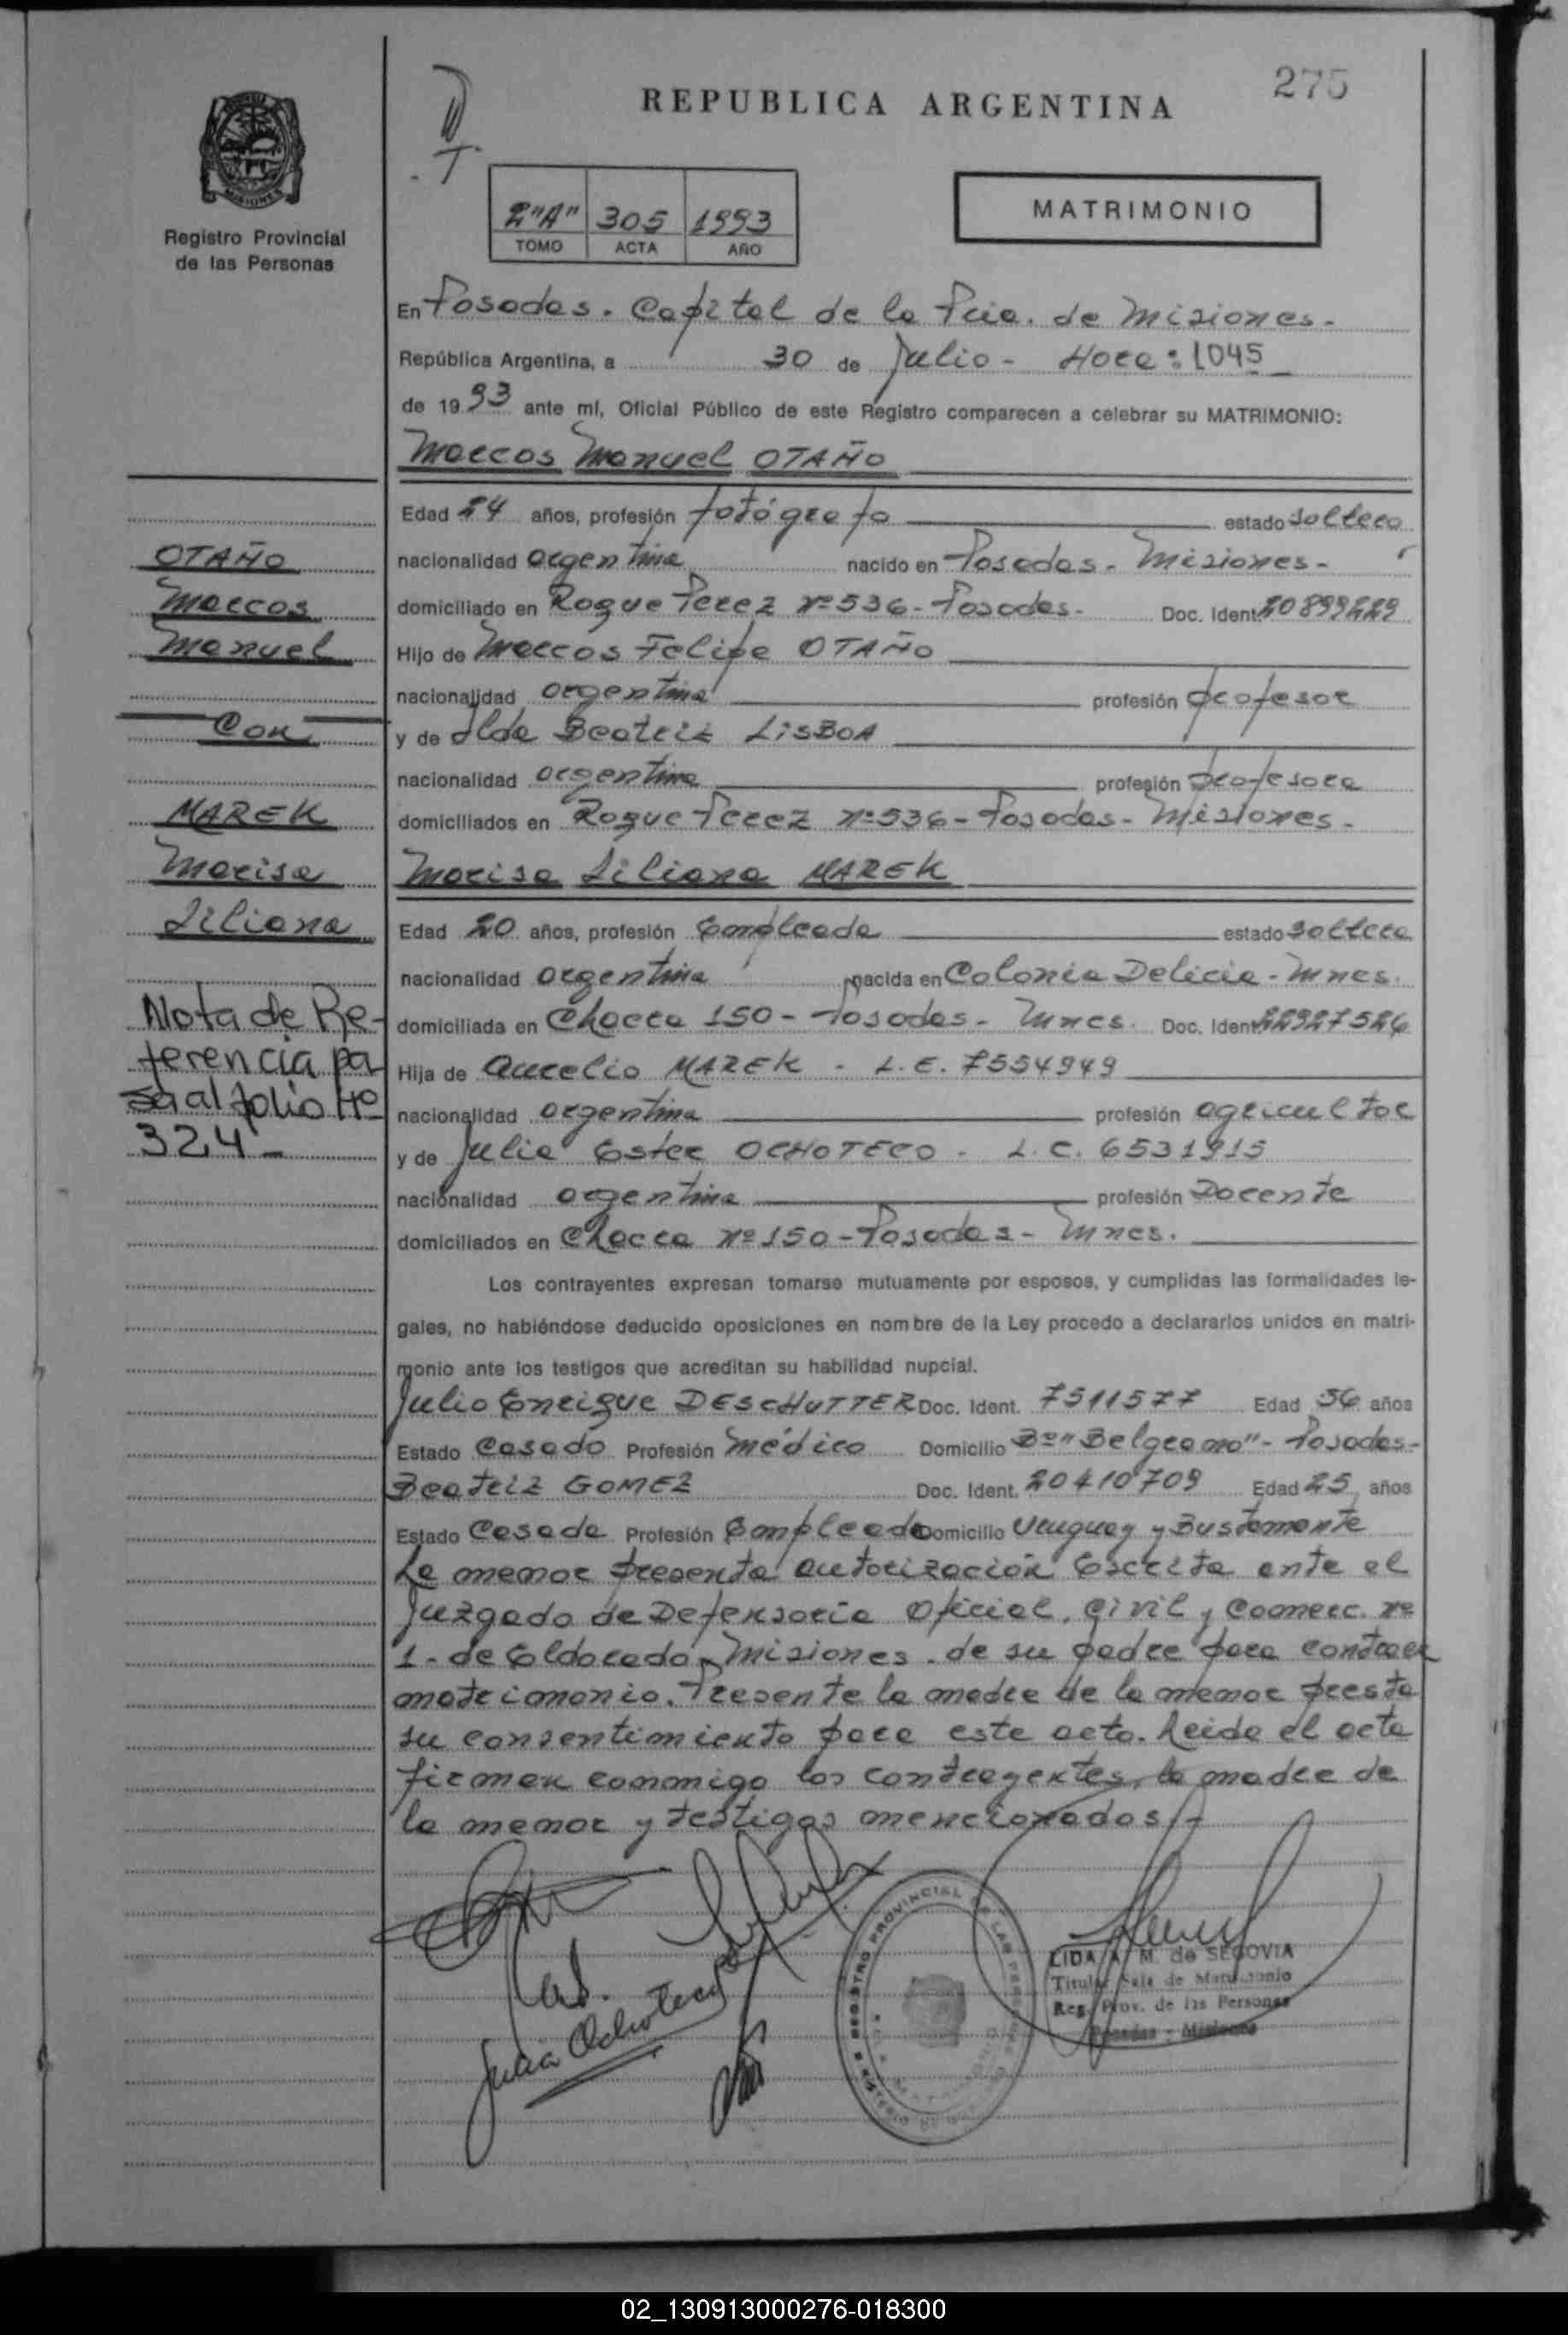 275
REPUBLICA ARGENTINA
MISIONES
Registro Provincial
de las Personas
2"A" 305 1993
TOMO ACTA AÑO
MATRIMONIO
En Posadas. Capital de la Pcia. de Misiones.
República Argentina, a 30 de Julio - Hora: 1045
de 1993 ante mí, Oficial Público de este Registro comparecen a celebrar su MATRIMONIO:
Marcos Manuel OTAÑO
Edad 24 años, profesión fotógrafo estado soltero
nacionalidad argentina nacido en Posadas - Misiones -
domiciliado en Roque Perez nº 536 - Posadas - Doc. Ident. 20899229
Hijo de Marcos Felipe OTAÑO
nacionalidad argentina profesión profesor
y de Ilda Beatriz LISBOA
nacionalidad argentina profesión profesora
domiciliados en Roque Perez nº 536 - Posadas - Misiones -
Marisa Liliana MAREK
Edad 20 años, profesión Empleada estado soltera
nacionalidad argentina nacida en Colonia Delicia - Mnes.
domiciliada en Chacra 150 - Posadas - Mnes. Doc. Ident. 22927526
Hija de Aurelio MAREK - L.E. 7554949
nacionalidad argentina profesión agricultor
y de Julia Ester OCHOTECO - L.C. 6531915
nacionalidad argentina profesión Docente
domiciliados en Chacra nº 150 - Posadas - Mnes.
Los contrayentes expresan tomarse mutuamente por esposos, y cumplidas las formalidades le-
gales, no habiéndose deducido oposiciones en nombre de la Ley procedo a declararlos unidos en matri-
monio ante los testigos que acreditan su habilidad nupcial.
Julio Enrique DESCHUTTER Doc. Ident. 7511577 Edad 56 años
Estado Casado Profesión Médico Domicilio Bº "Belgrano" - Posadas -
Beatriz GOMEZ Doc. Ident. 20410709 Edad 25 años
Estado Casada Profesión Empleada Domicilio Uruguay y Bustamante
La menor presenta autorización Escrita ante el
Juzgado de Defensoría Oficial, Civil y Comerc. nº
1 - de Eldorado, Misiones - de su padre para contraer
matrimonio. Presente la madre de la menor presta
su consentimiento para este acto. Leida el acta
firman conmigo los contrayentes, la madre de
la menor y testigos mencionados
OTAÑO
Marcos
Manuel
Con
MAREK
Marisa
Liliana
Nota de Re-
ferencia pa
sa al folio Nº
324 -
Julia Ochoteco
REGISTRO PROVINCIAL DE LAS PERSONAS
LIDA A. M. de SEGOVIA
Titular Sala de Matrimonio
Reg. Prov. de las Personas
Posadas - Misiones
02_130913000276-018300